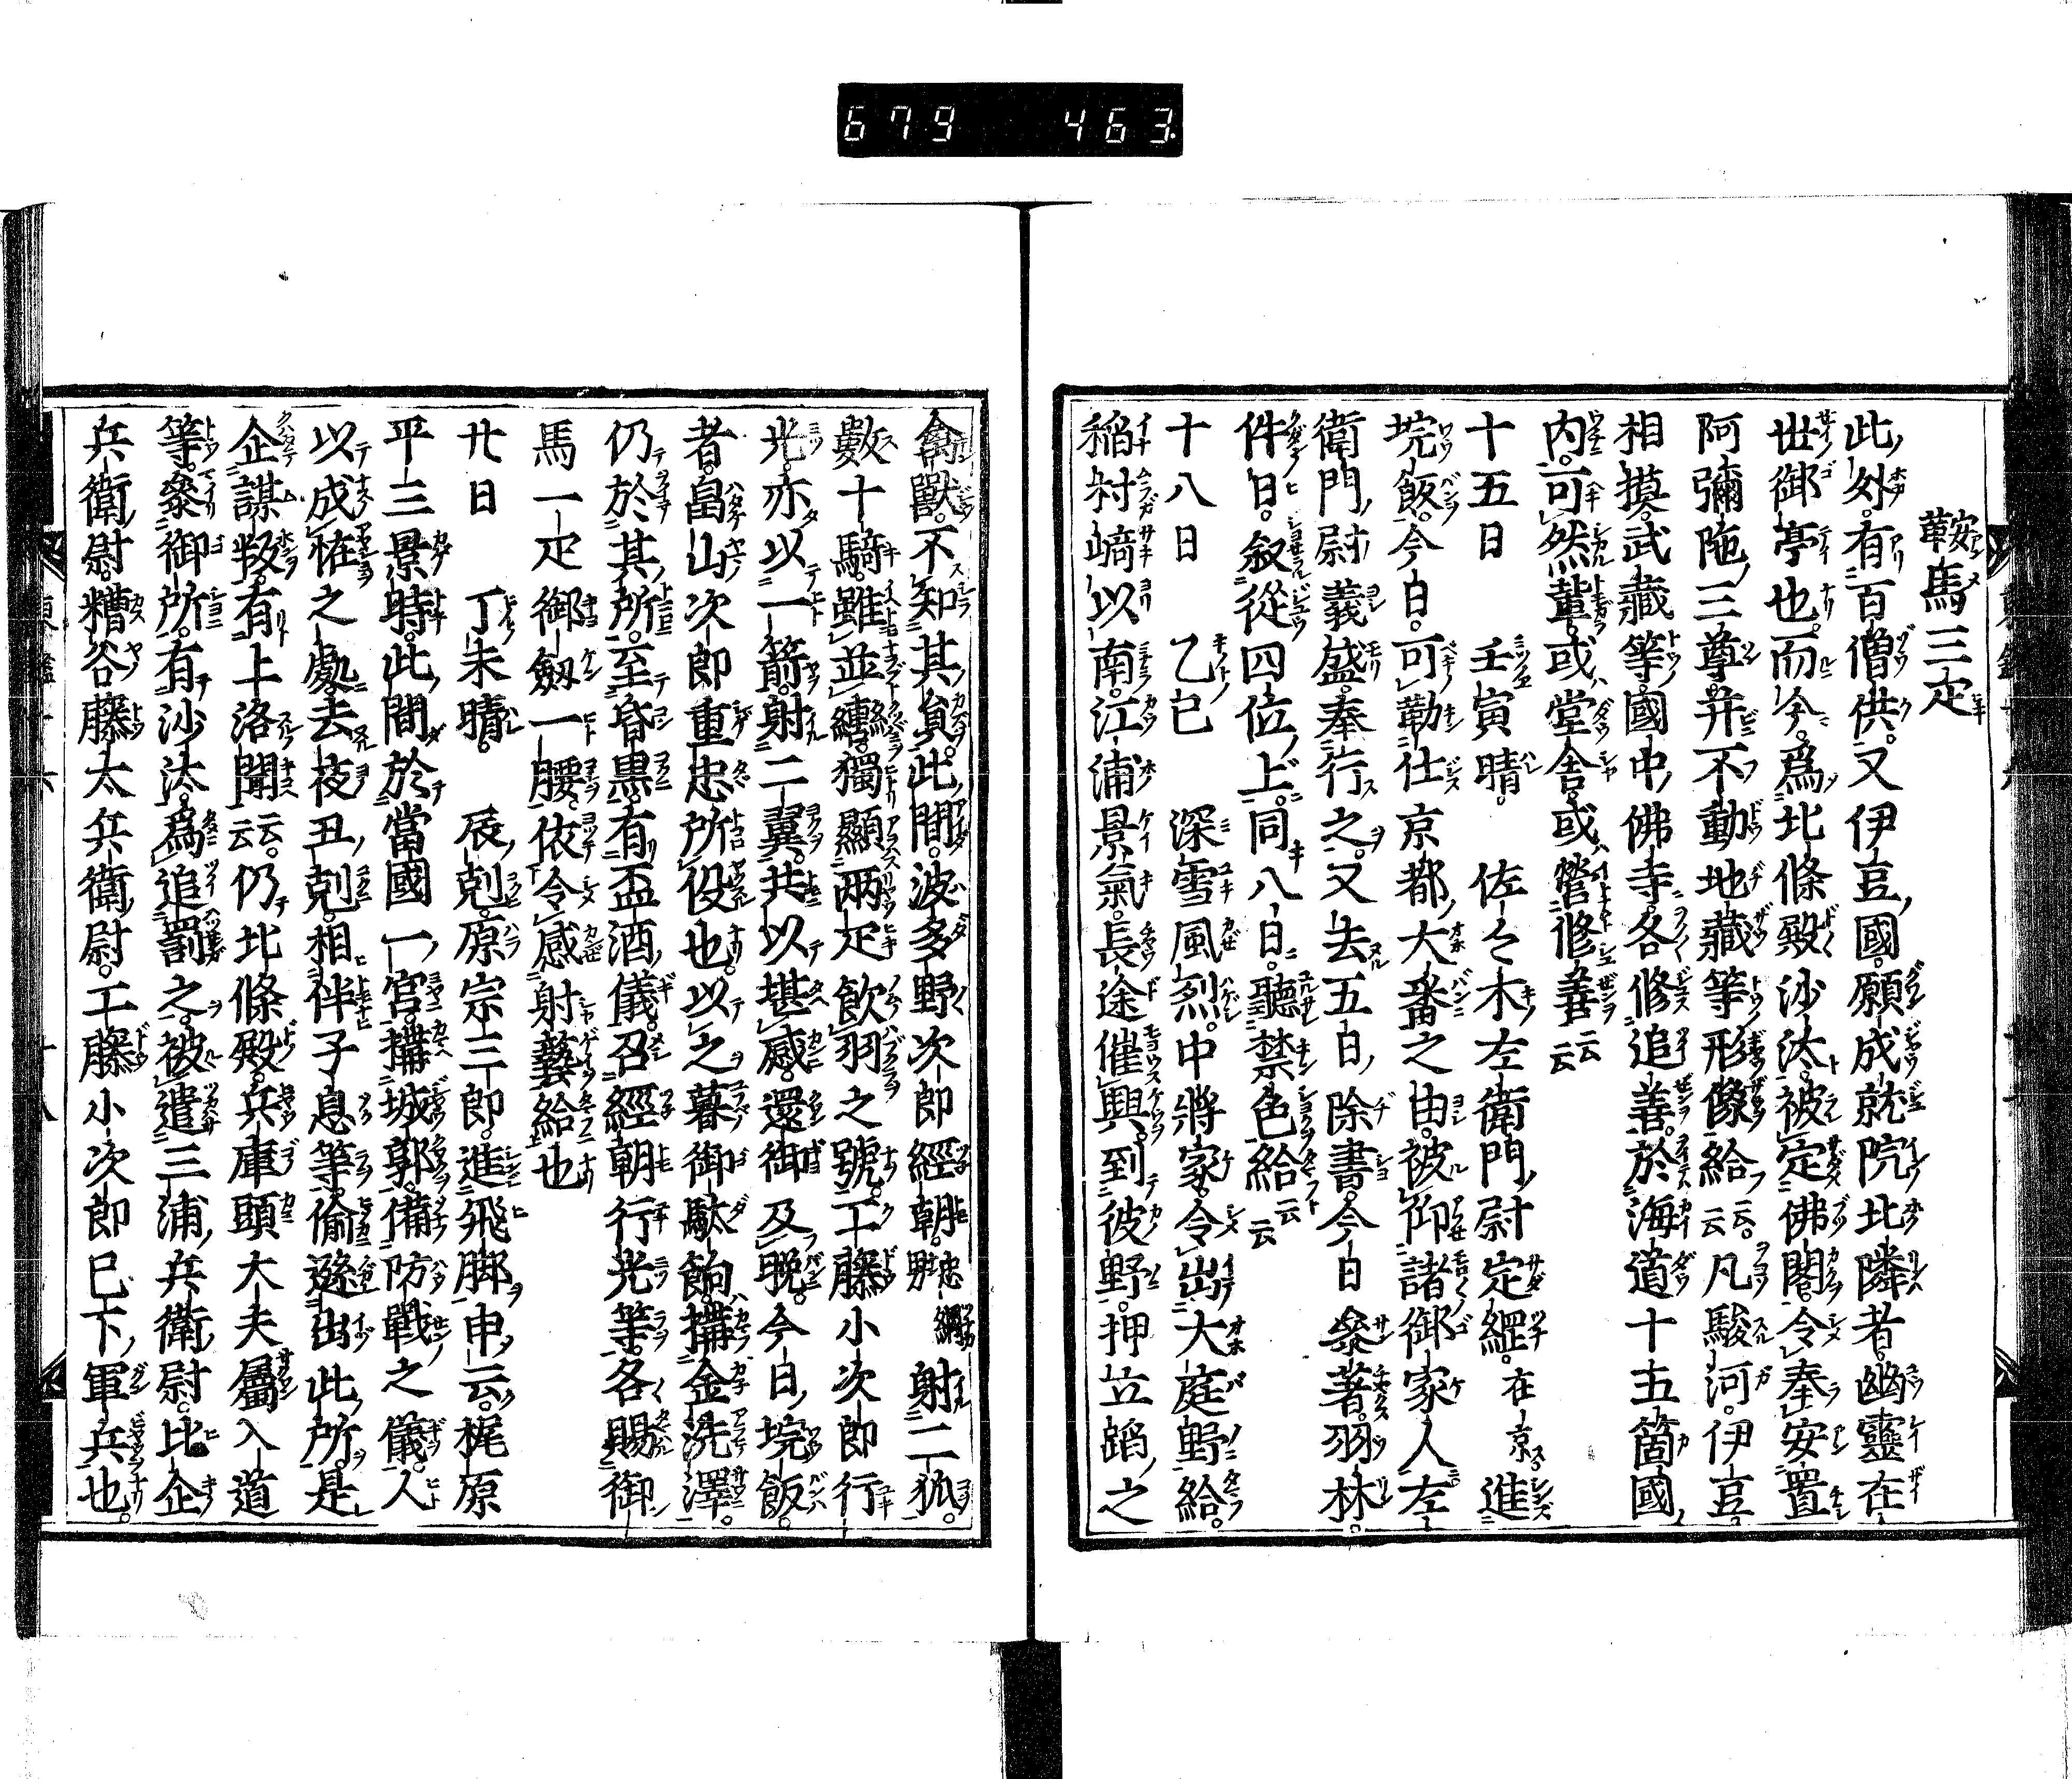 679 463
鞍馬三疋
此外。有百僧供。又伊豆國。願成就院北隣者。幽靈在
世御亭也。而今。爲北條殿沙汰。被定佛閣。令奉安置
阿彌陁三尊。并不動地藏等形像給云云。凡駿河。伊豆。
相摸。武藏等國中佛寺各修追善。於海道十五箇國
内。可然輩。或堂舎。或營修善云云
十五日 壬寅晴。 佐々木左衛門尉定綱。在京。進
垸飯。今日。可勤仕京都大番之由。被仰諸御家人左
衛門尉義盛奉行之。又去五日除書。今日參著。羽林。
件日。叙從四位上。同八日。聽禁色給云云
十八日 乙巳 深雪風烈。中將家。令出大庭野給。
稲村﨑以南。江浦景氣。長途催興。到彼野。押立蹈之
禽獸。不知其員。此間。波多野次郎經朝。忠綱男射二狐。
數十騎。雖並轡。獨顯兩疋飮羽之號。工藤小次郎行
光。亦以一箭。射二翼。共以堪感。還御及晩。今日垸飯。
者。畠山次郎重忠所役也。以之暮御駄餉。搆金洗澤。
仍於其所。至昏黒。有盃酒儀。召經朝行光等。各賜御
馬一疋御劔一腰。依令感射藝給也
廿日 丁未晴。 辰剋。原宗三郎。進飛脚申云。梶原
平三景時。此間於當國一宮。搆城郭。備防戰之儀。人
以成恠之處。去夜丑剋。相伴子息等。偷遜出此所。是
企謀叛。有上洛聞云云。仍北條殿。兵庫頭大夫屬入道
等。參御所。有沙汰。爲追罰之。被遣三浦兵衛尉。比企
兵衛尉。糟谷藤太兵衛尉。工藤小次郎已下軍兵也。